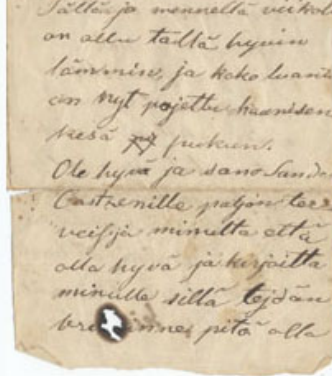 Tällä ja mennellä viikol
on ollu tällä hyvin
lämmin, ja koko luanto
on nyt pojettu kaanisen
kesä pukuun.
Ole hyvä ja sano Sand
Castrenille paljon ter
veisjä minulta että
olla hyvä ja kirjoitta
minulle sillä tejdän
pitä olla